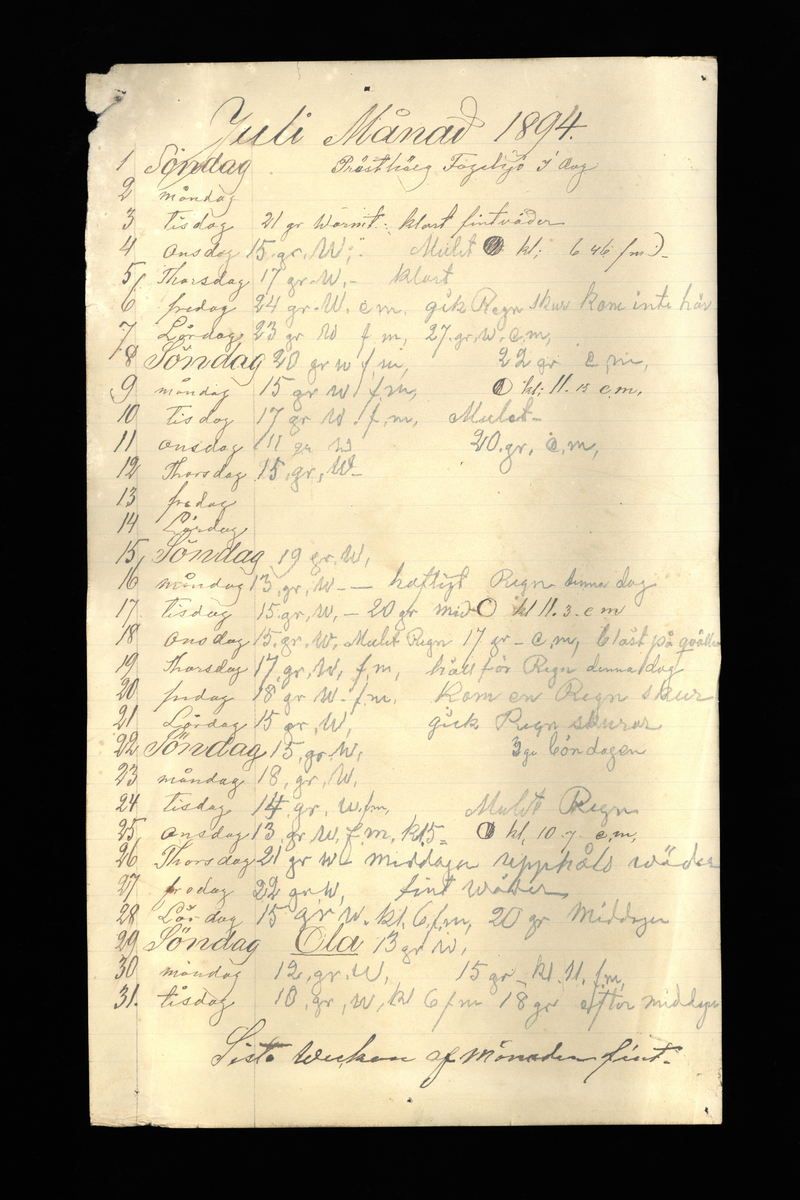 Juli Månad 1894.
1 Söndag Prästhelg Fogelsjö i dag
2 måndag
3 tisdag 21 gr Warmt: klart fintväder
4 onsdag 15 gr. W; Mulet kl; 6 46 fm
5 Thorsdag 17 gr. W. - klart
6 fredag 24 gr. W. e m. gik Regn skur kom inte här
7 Lördag 23 gr W f m, 27 gr. w. e. m,
8 Söndag 20 gr w f, m, 22 gr e, m,
9 måndag 15 gr W f, m, kl; 11. 15 e. m.
10 tisdag 17 gr W. f, m, Mulet -
11 onsdag 11 gr W 20. gr, e, m,
12 Thorsdag 15, gr, W -
13 fredag
14 Lördag
15 Söndag 19 gr. W,
16 måndag 13, gr, W - — häftigt Regn denna dag
17 tisdag 15. gr, W, - 20 gr mid kl 11. 3. e m
18 onsdag 15. gr, W, Mulet Regn 17 gr - e, m, blåst på qvällen
19 Thorsdag 17, gr, W, f, m, håll för Regn denna dag
20 fredag 18 gr W - f. m. kom en Regn skur
21 Lördag 15 gr, W, gick Regn skurar
22 Söndag 15, gr, W, 3 ge böndagen
23 måndag 18, gr, W,
24 tisdag 14, gr, W. f m, Mulet Regn
25 onsdag 13, gr, W, f, m, kl 5 = kl, 10. 7 e, m,
26 Thorsdag 21 gr w - middagen upphåls wäder
27 fredag 22 gr W, fint wäder
28 Lördag 15 gr W. kl. 6 f, m, 20 gr Middagen
29 Söndag Ola 13 gr W,
30 måndag 12, gr. W, 15 gr - kl. 11, f, m,
31. tisdag 10, gr, W, kl 6 f m 18 gr efter middagen
Sista Weckan af Månaden fint.